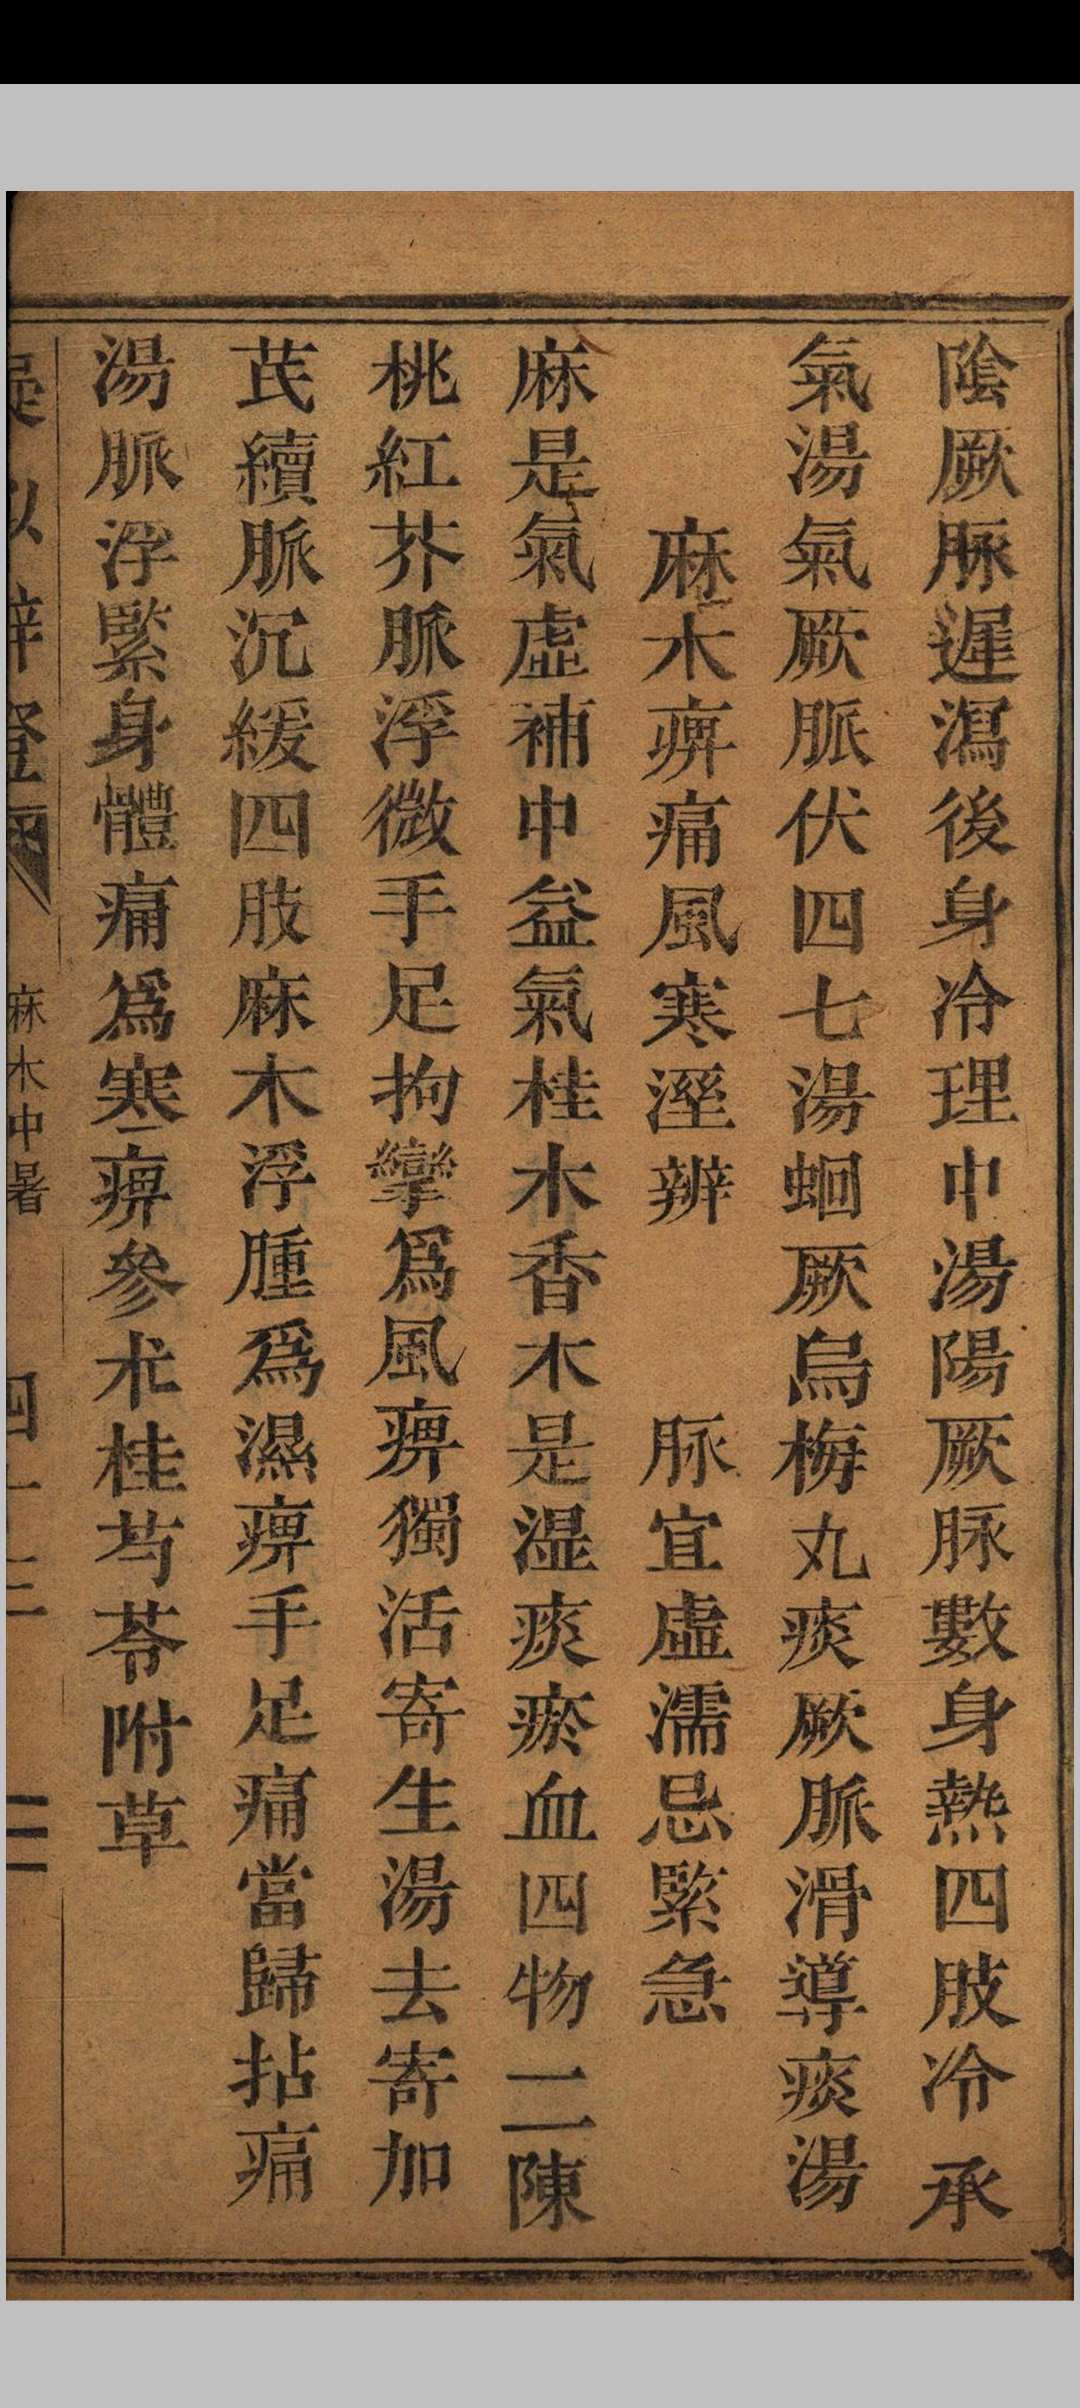 陰厥脉遲瀉後身冷理中湯陽厥脉數身熱四肢冷承
氣湯氣厥脈伏四七湯蛔厥烏梅丸痰厥脈滑導痰湯
麻木痹痛風寒溼辨 脉宜虛濡忌緊急
麻是氣虛補中益氣桂木香木是湿痰瘀血四物二陳
桃紅芥脈浮微手足拘攣爲風痹獨活寄生湯去寄加
芪續脈沉緩四肢麻木浮腫爲濕痹手足痛當歸拈痛
湯脈浮緊身體痛爲寒痹參朮桂芍苓附草
疑似辨證 麻木中暑 四十三